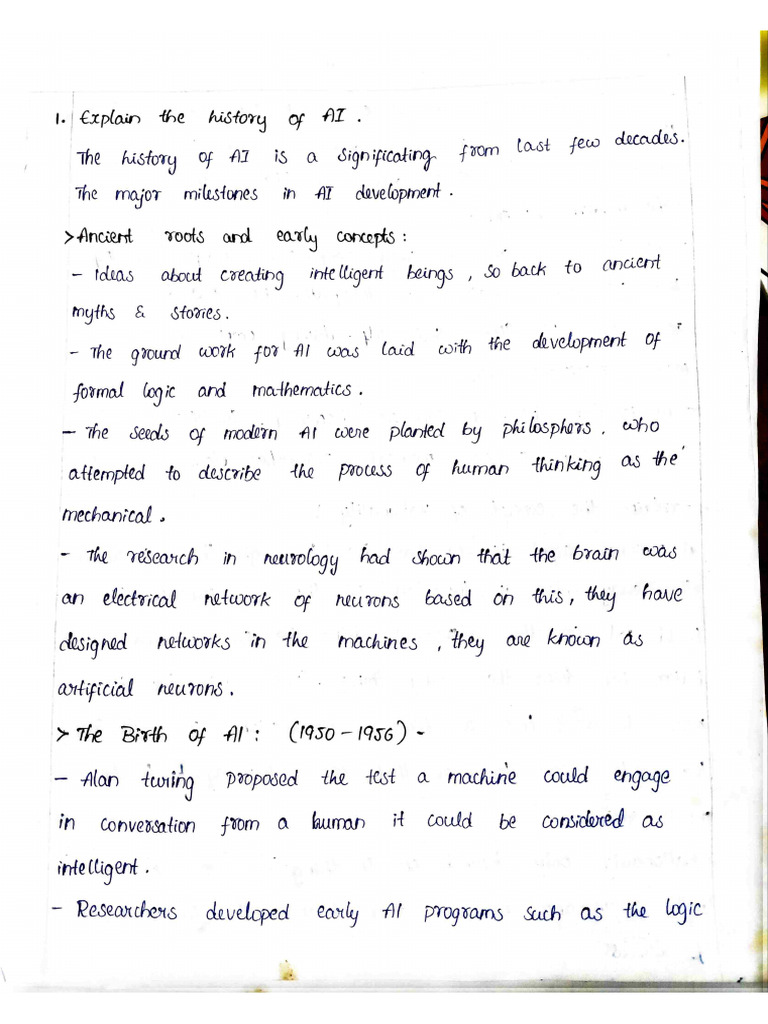 1. Explain the history of AI.
The history of AI is a significating from last few decades.
The major milestones in AI development.
> Ancient roots and early concepts:
- Ideas about creating intelligent beings, so back to ancient
myths & stories.
- The ground work for AI was laid with the development of
formal logic and mathematics.
- The seeds of modern AI were planted by philosphers. who
attempted to describe the process of human thinking as the
mechanical.
- The research in neurology had shown that the brain was
an electrical network of neurons based on this, they have
designed networks in the machines, they are known as
artificial neurons.
> The Birth of AI: (1950-1956)-
- Alan turing proposed the test a machine could engage
in conversation from a human it could be considered as
intelligent.
- Researchers developed early AI programs such as the logic